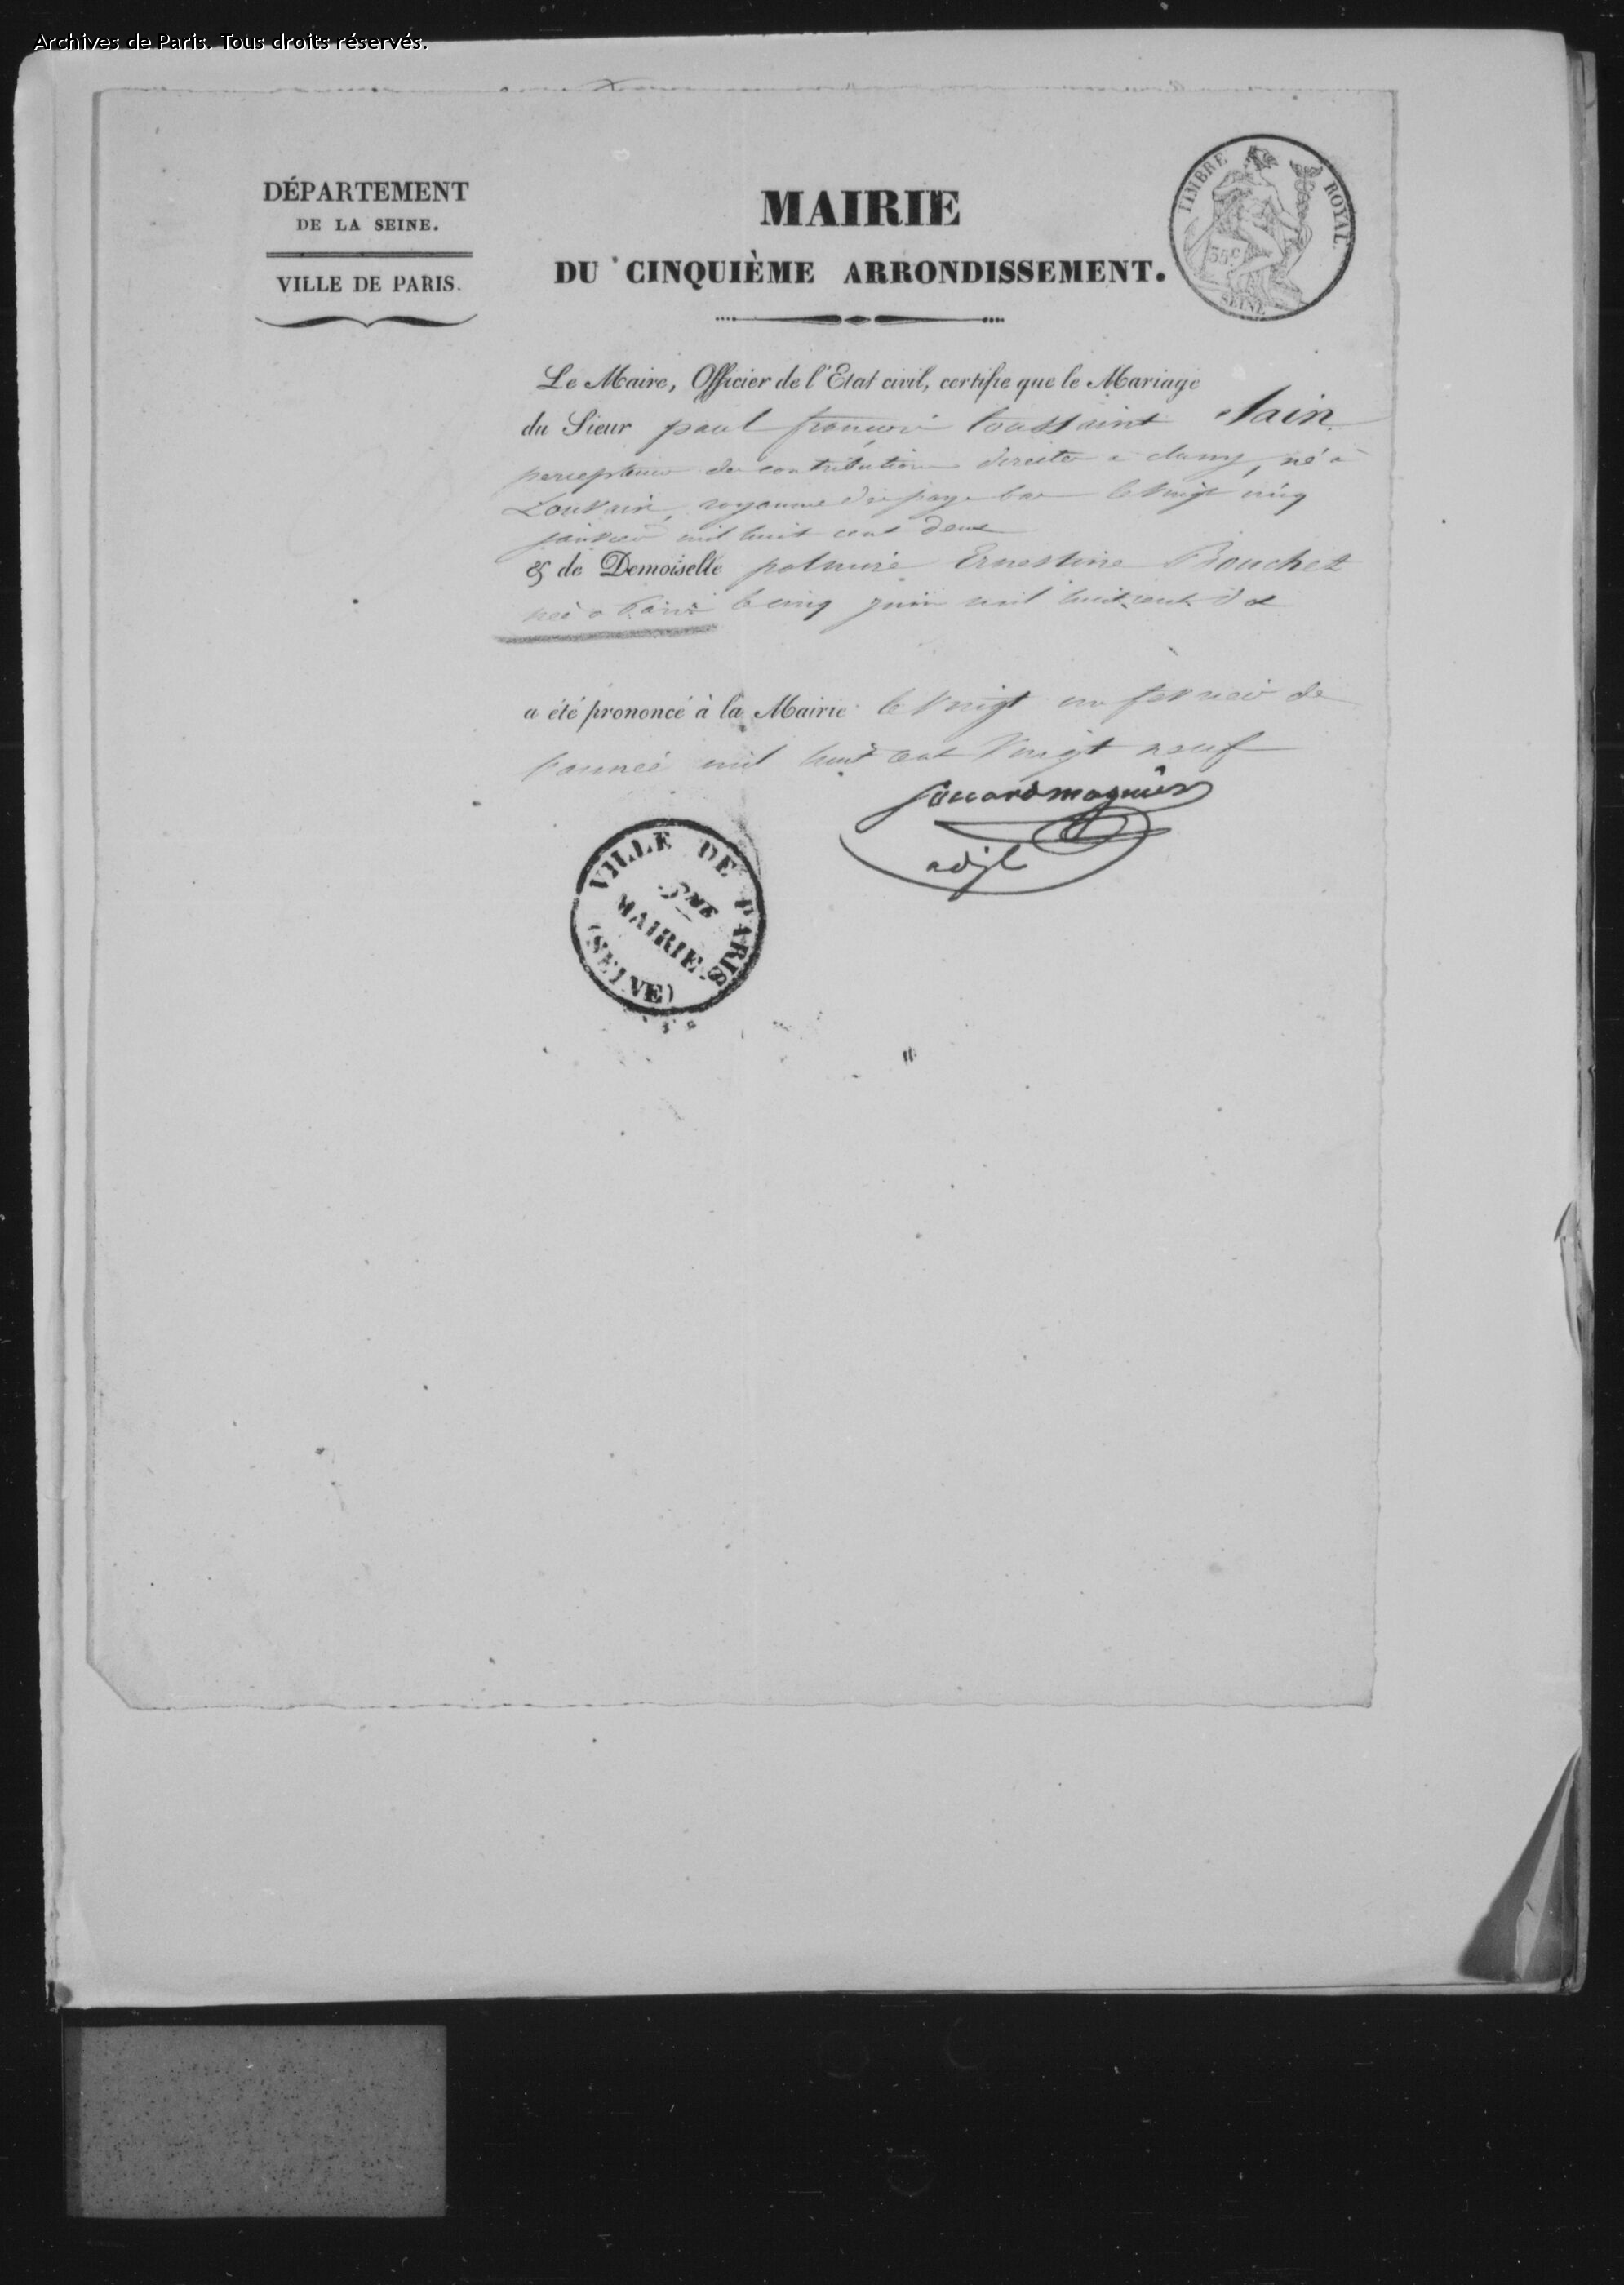 Archives de Paris. Tous droits réservés.
DÉPARTEMENT
DE LA SEINE.
VILLE DE PARIS.
MAIRIE
DU CINQUIÈME ARRONDISSEMENT.
TIMBRE ROYAL.
35 c
SEINE
Le Maire, Officier de l'Etat civil, certifie que le Mariage
du Sieur paul françois toussaint
percepteur des contributions directes a, né à
Louvain, royaume des pays bas le vingt cinq
janvier mil huit cent deux
& de Demoiselle palmire Ernestine Bouchez
née a Paris le cinq juin mil huit cent dix
a été prononcé à la Mairie le vingt un fevrier de
l'année mil huit cent vingt neuf
adjt
VILLE DE PARIS
5ME
MAIRIE
(SEINE)